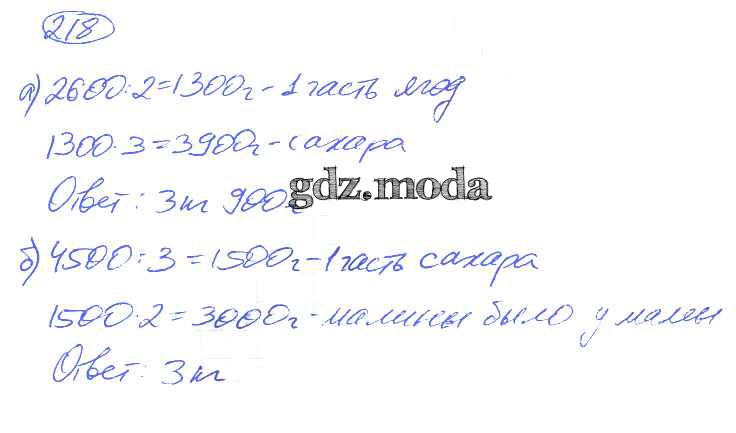 218
а) 2600:2=1300г-1 часть ягод
1300·3=3900г-сахара
Ответ: 3кг 900г
gdz.moda
б) 4500:3=1500г-1 часть сахара
1500·2=3000г-малины было у мамы
Ответ: 3кг